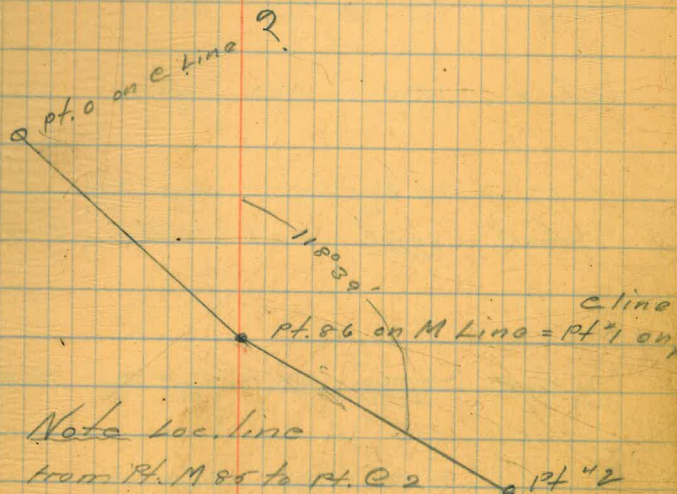 2.
pt. 0 on C Line
118° 39'
C line
pt. 86 on M Line = pt "1 on
Note Loc. line
from Pt. M 85 to pt. C 2
pt "2